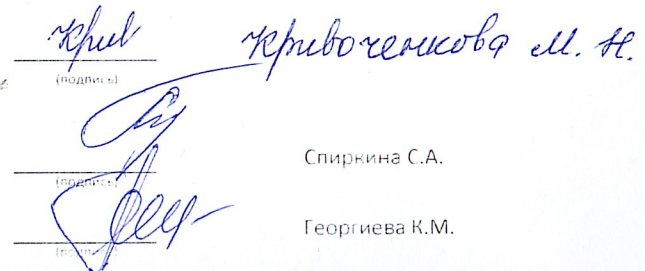 Крив Кривоченкова М. Н.
(подпись)
Спиркина С.А.
(подпись)
Георгиева К.М.
(подпись)